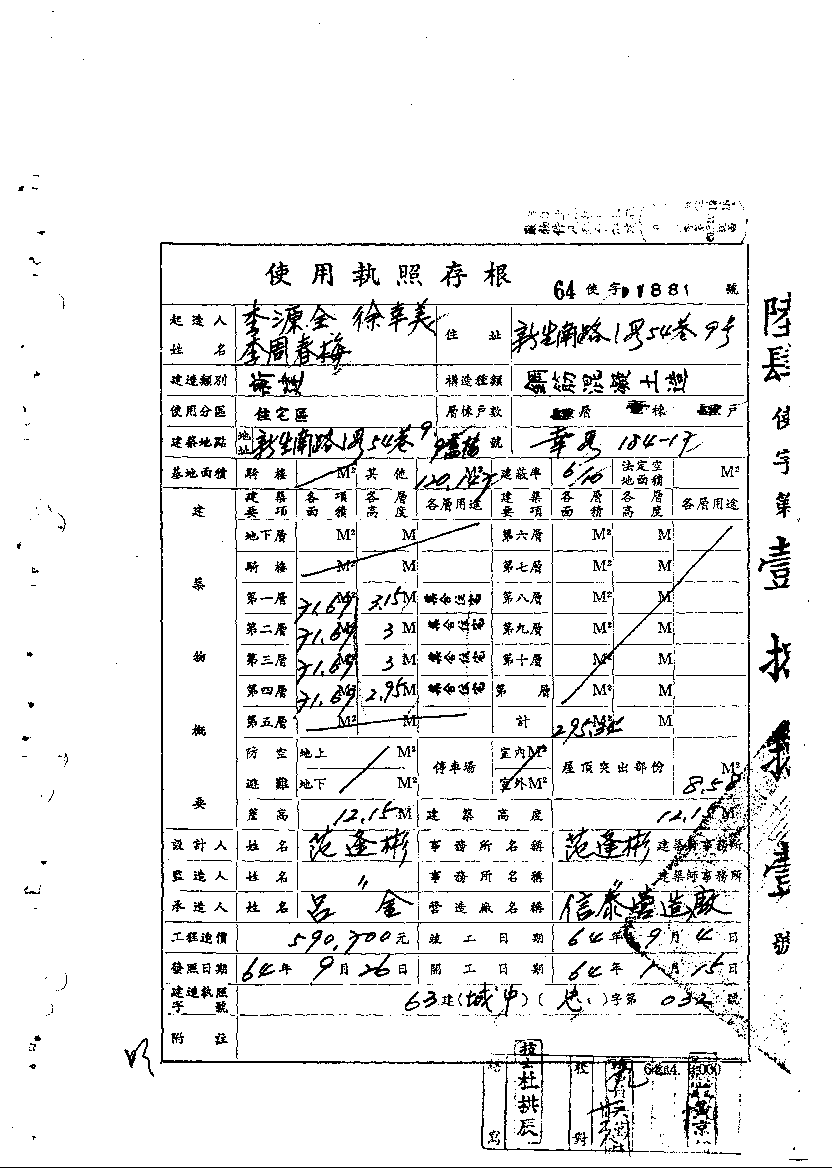 使用執照存根 64 使字 1881 號
起造人姓名 李源全 徐幸美 李周春梅 住址 新生南路1段54巷9号
建造類別 構造種類 鋼筋混凝土造
使用分區 住宅區 層棟戶數 層 棟 戶
建築地點 地址 新生南路1段54巷9 號 184-17
基地面積 騎樓 M² 其他 120.14 M² 建蔽率 6/10 法定空地面積 M²
建築物概要
建築要項 各項面積 各層高度 各層用途 建築要項 各層面積 各層高度 各層用途
地下層 M² M 第六層 M² M
騎樓 M² M 第七層 M² M
第一層 71.69 M² 3.15 M 第八層 M² M
第二層 71.69 M² 3 M 第九層 M² M
第三層 71.69 M² 3 M 第十層 M² M
第四層 71.69 M² 2.95 M 第 層 M² M
第五層 M² M 計 295.34 M²
防空避難 地上 M² 停車場 室內M² 屋頂突出部份 M²
地下 M² 室外M² 8.58
簷高 12.15 M 建築高度 12.15 M
設計人 姓名 范逢彬 事務所名稱 范逢彬 建築師事務所
監造人 姓名 〃 事務所名稱 〃 建築師事務所
承造人 姓名 呂金 營造廠名稱 信泰營造廠
工程造價 590,700元 竣工日期 64年9月4日
發照日期 64年9月26日 開工日期 64年1月15日
建造執照字號 63建(城中)(忠)字第032號
附註
陸肆使字第壹 號
繕寫 技士杜拱辰 校對